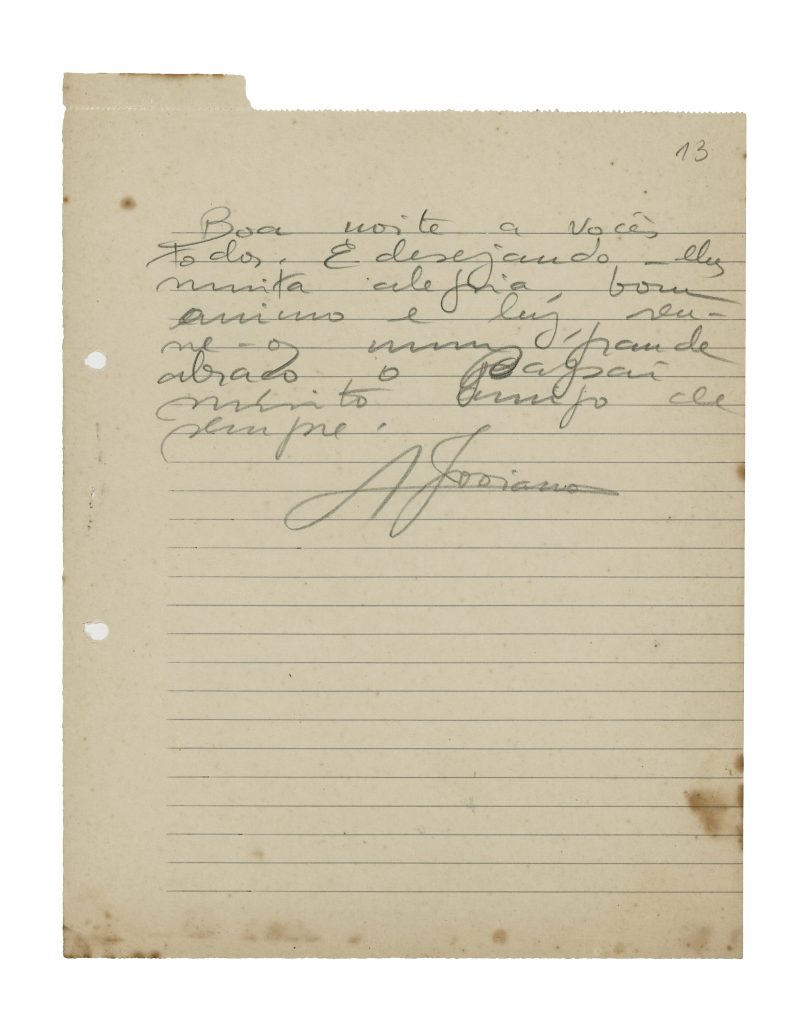 13
Boa noite a vocês
todos. E desejando-lhes
muita alegria, bom
animo e luz, reu-
ne-os num grande
abraço o papai
muito amigo de
sempre.
A Joviano